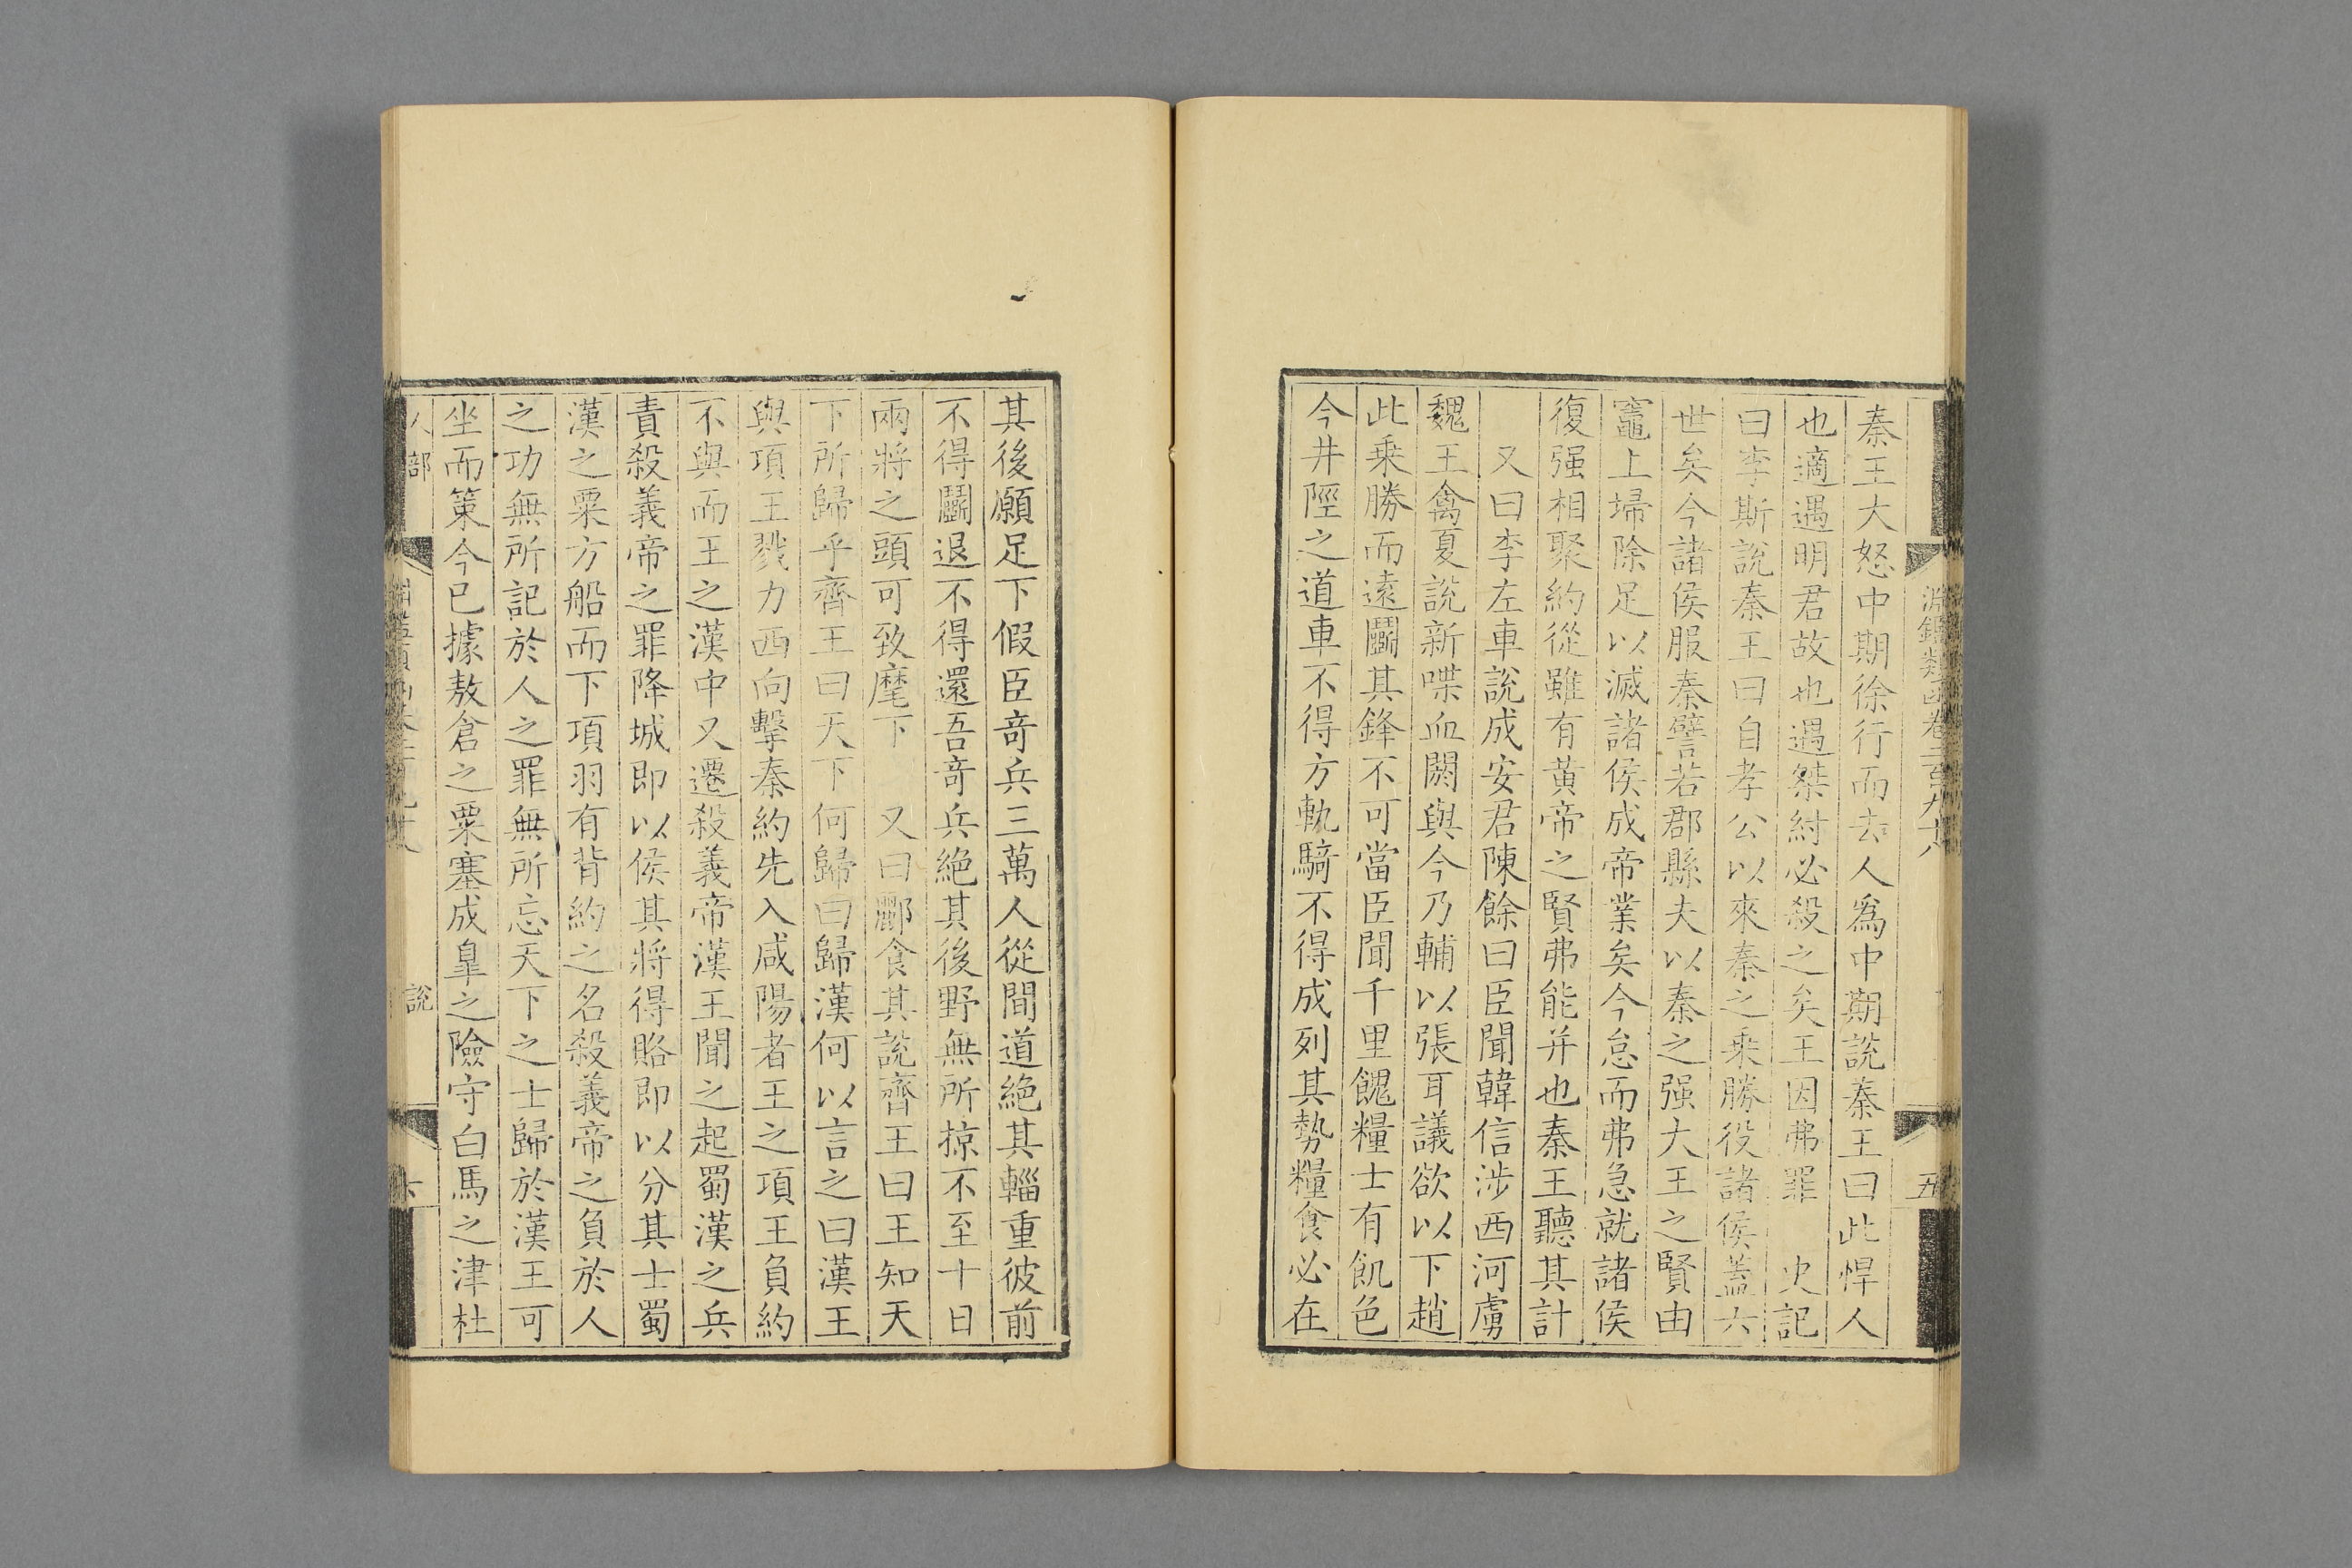 淵鑑類函卷二百九十八
五
秦王大怒中期徐行而去人爲中期說秦王曰此悍人
也適遇明君故也遇桀紂必殺之矣王因弗罪　史記
曰李斯說秦王曰自孝公以來秦之乗勝役諸侯蓋六
世矣今諸侯服秦譬若郡縣夫以秦之强大王之賢由
竈上埽除足以滅諸侯成帝業矣今怠而弗急就諸侯
復强相聚約從雖有黃帝之賢弗能并也秦王聽其計
　又曰李左車說成安君陳餘曰臣聞韓信涉西河虜
魏王禽夏說新喋血閼與今乃輔以張耳議欲以下趙
此乗勝而遠鬭其鋒不可當臣聞千里餽糧士有飢色
今井陘之道車不得方軌騎不得成列其勢糧食必在
其後願足下假臣竒兵三萬人從間道絶其輜重彼前
不得鬭退不得還吾竒兵絶其後野無所掠不至十日
兩將之頭可致麾下　又曰酈食其說齊王曰王知天
下所歸乎齊王曰天下何歸曰歸漢何以言之曰漢王
與項王戮力西向擊秦約先入咸陽者王之項王負約
不與而王之漢中又遷殺義帝漢王聞之起蜀漢之兵
責殺義帝之罪降城即以侯其將得賂即以分其士蜀
漢之粟方船而下項羽有背約之名殺義帝之負於人
之功無所記於人之罪無所忘天下之士歸於漢王可
坐而策今已據敖倉之粟塞成皐之險守白馬之津杜
人部
說
六